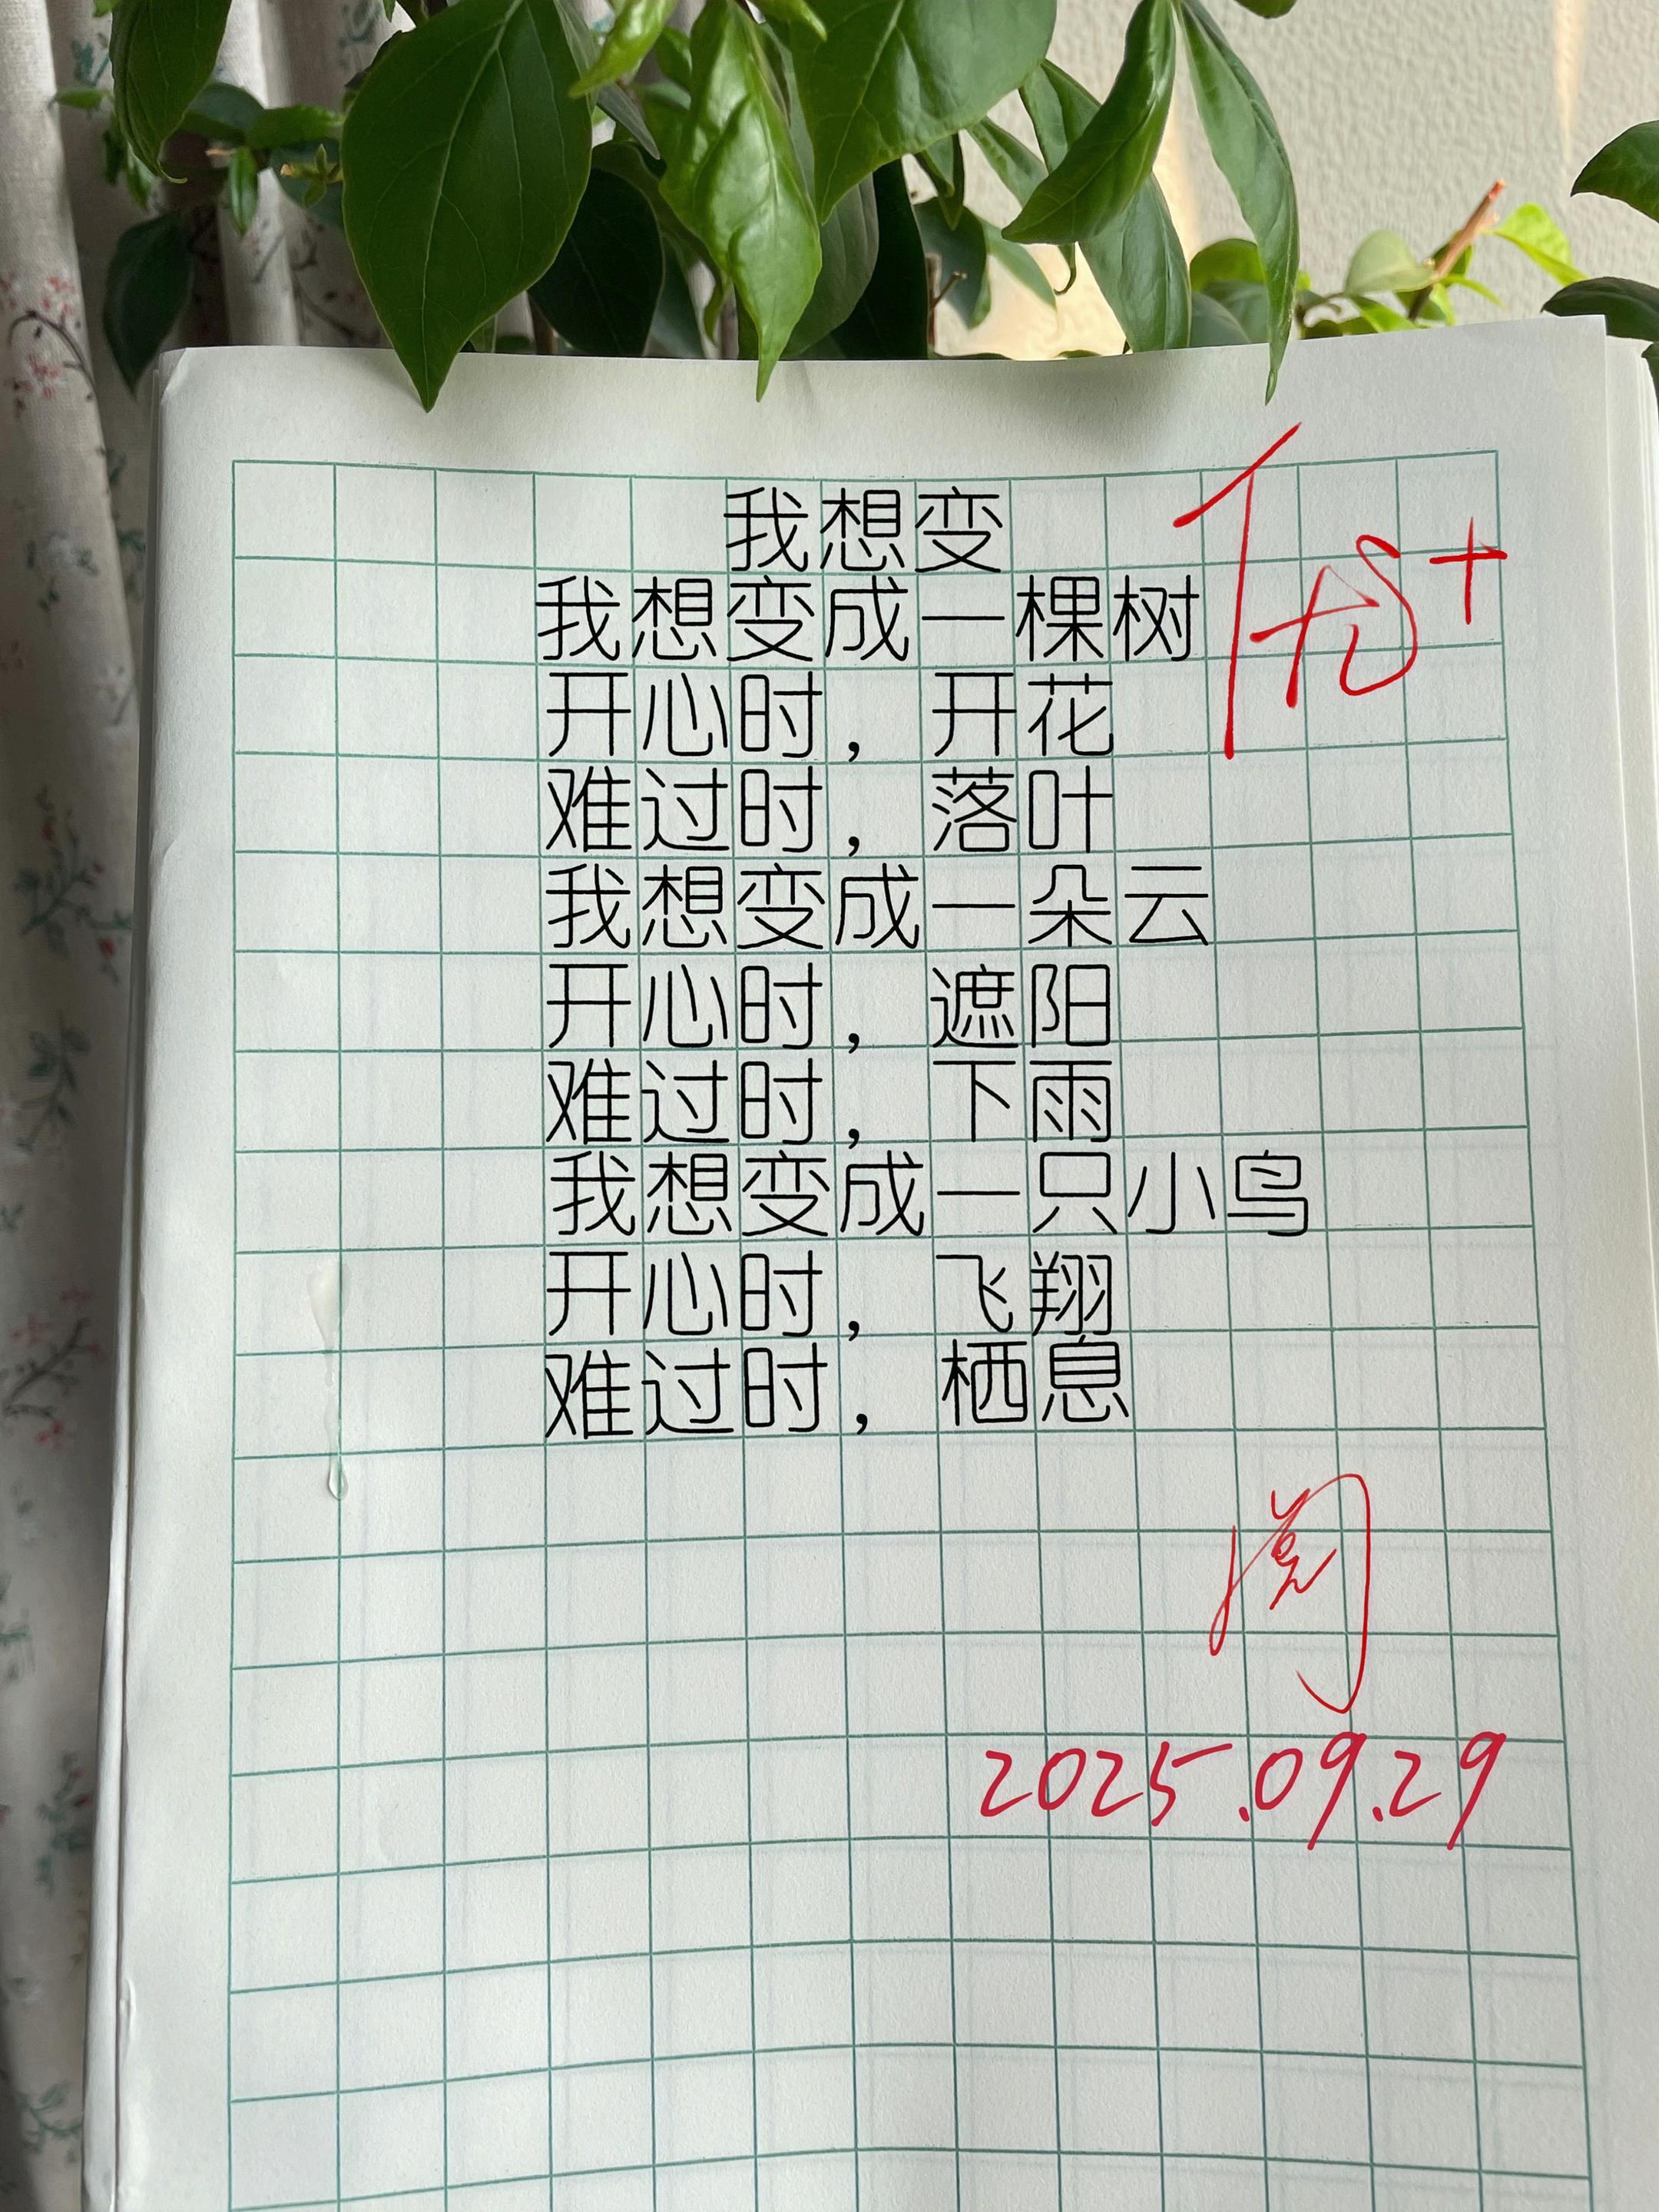 我想变
优+
我想变成一棵树
开心时，开花
难过时，落叶
我想变成一朵云
开心时，遮阳
难过时，下雨
我想变成一只小鸟
开心时，飞翔
难过时，栖息
阅
2025.09.29